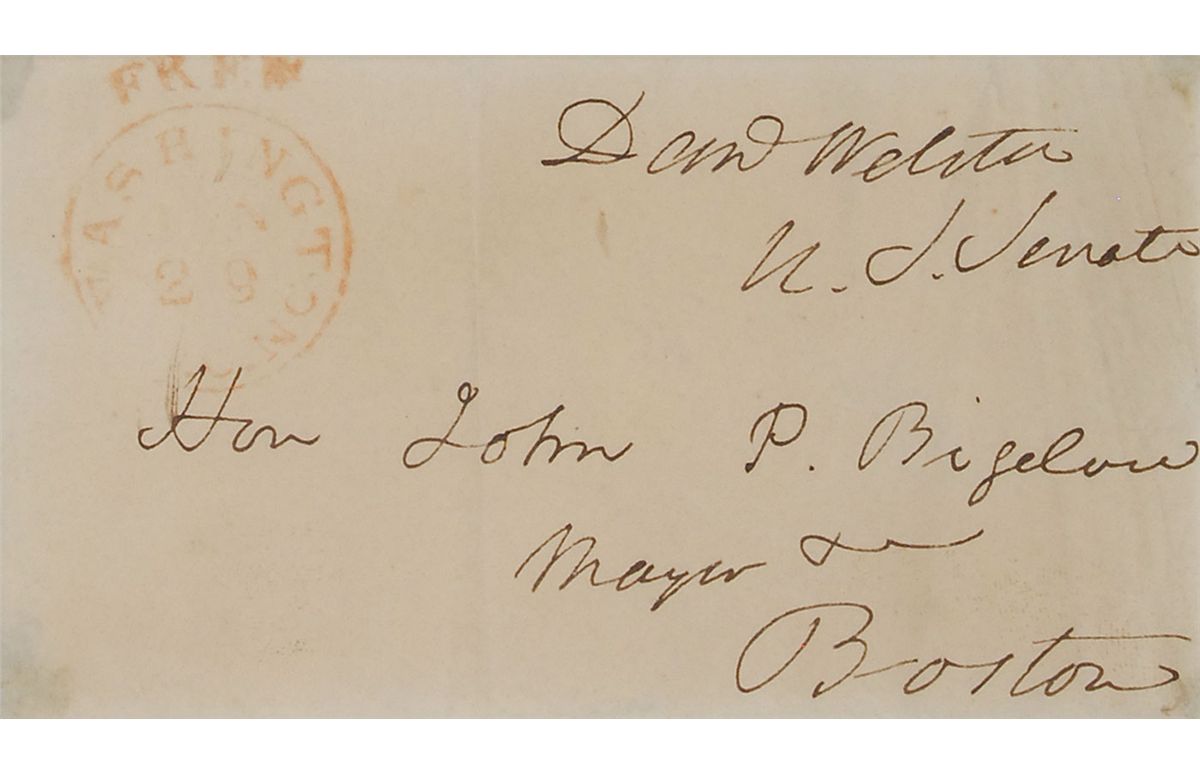 FREE
WASHINGTON
29
Danl Webster
U. S. Senate
Hon John P. Bigelow
Mayor &c
Boston